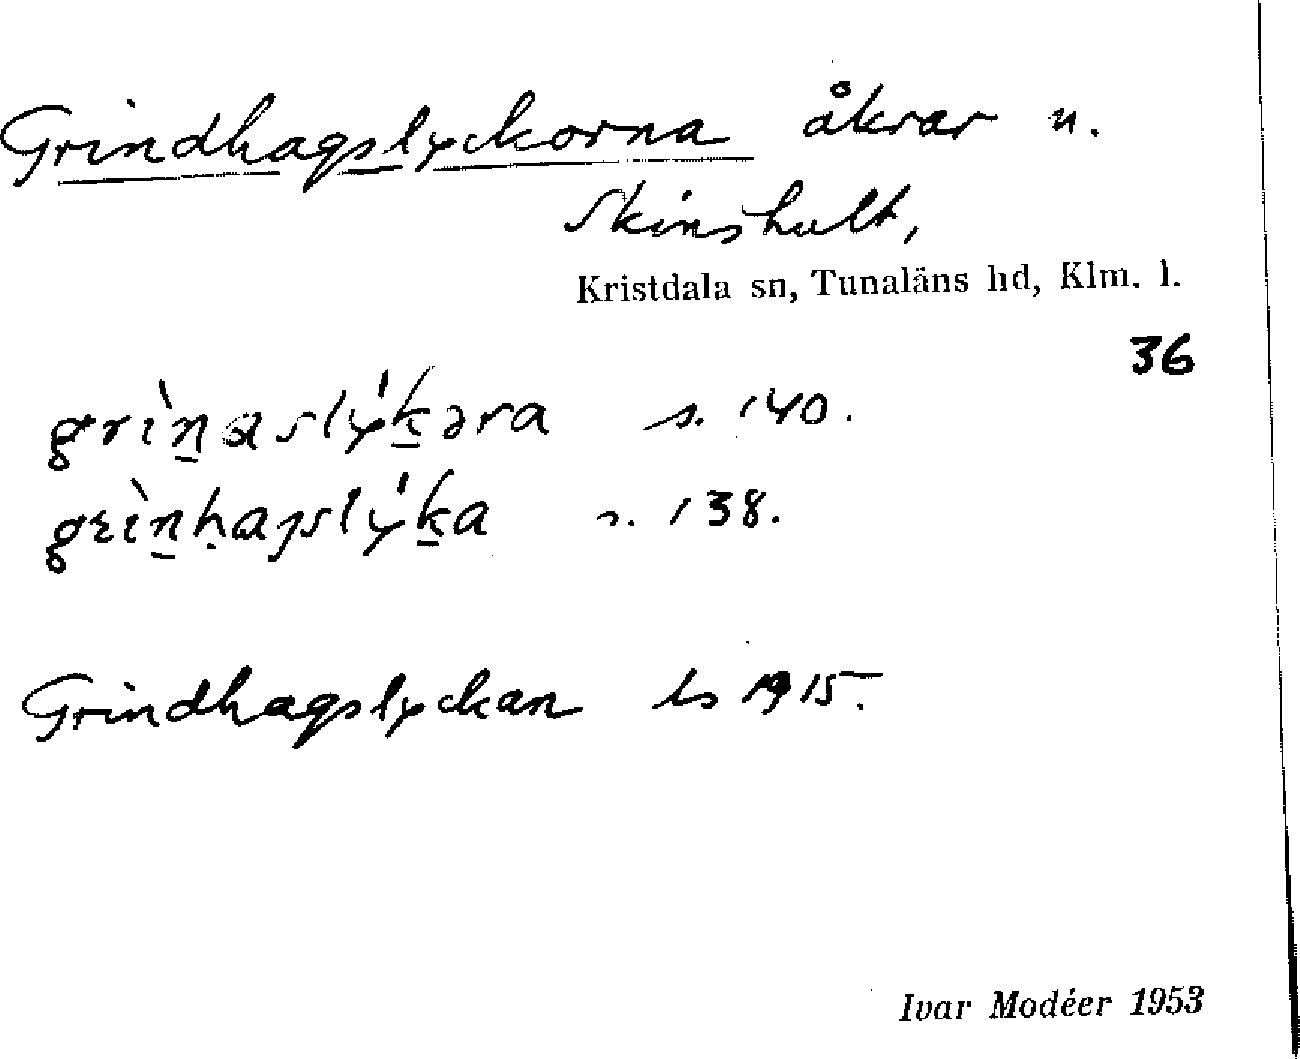 Grindhagslyckorna åkrar u.
Skinshult,
Kristdala sn, Tunaläns hd, Klm. l.
36
s. 140.
s. 138.
Grindhagslyckan ls 1915.
Ivar Modéer 1953